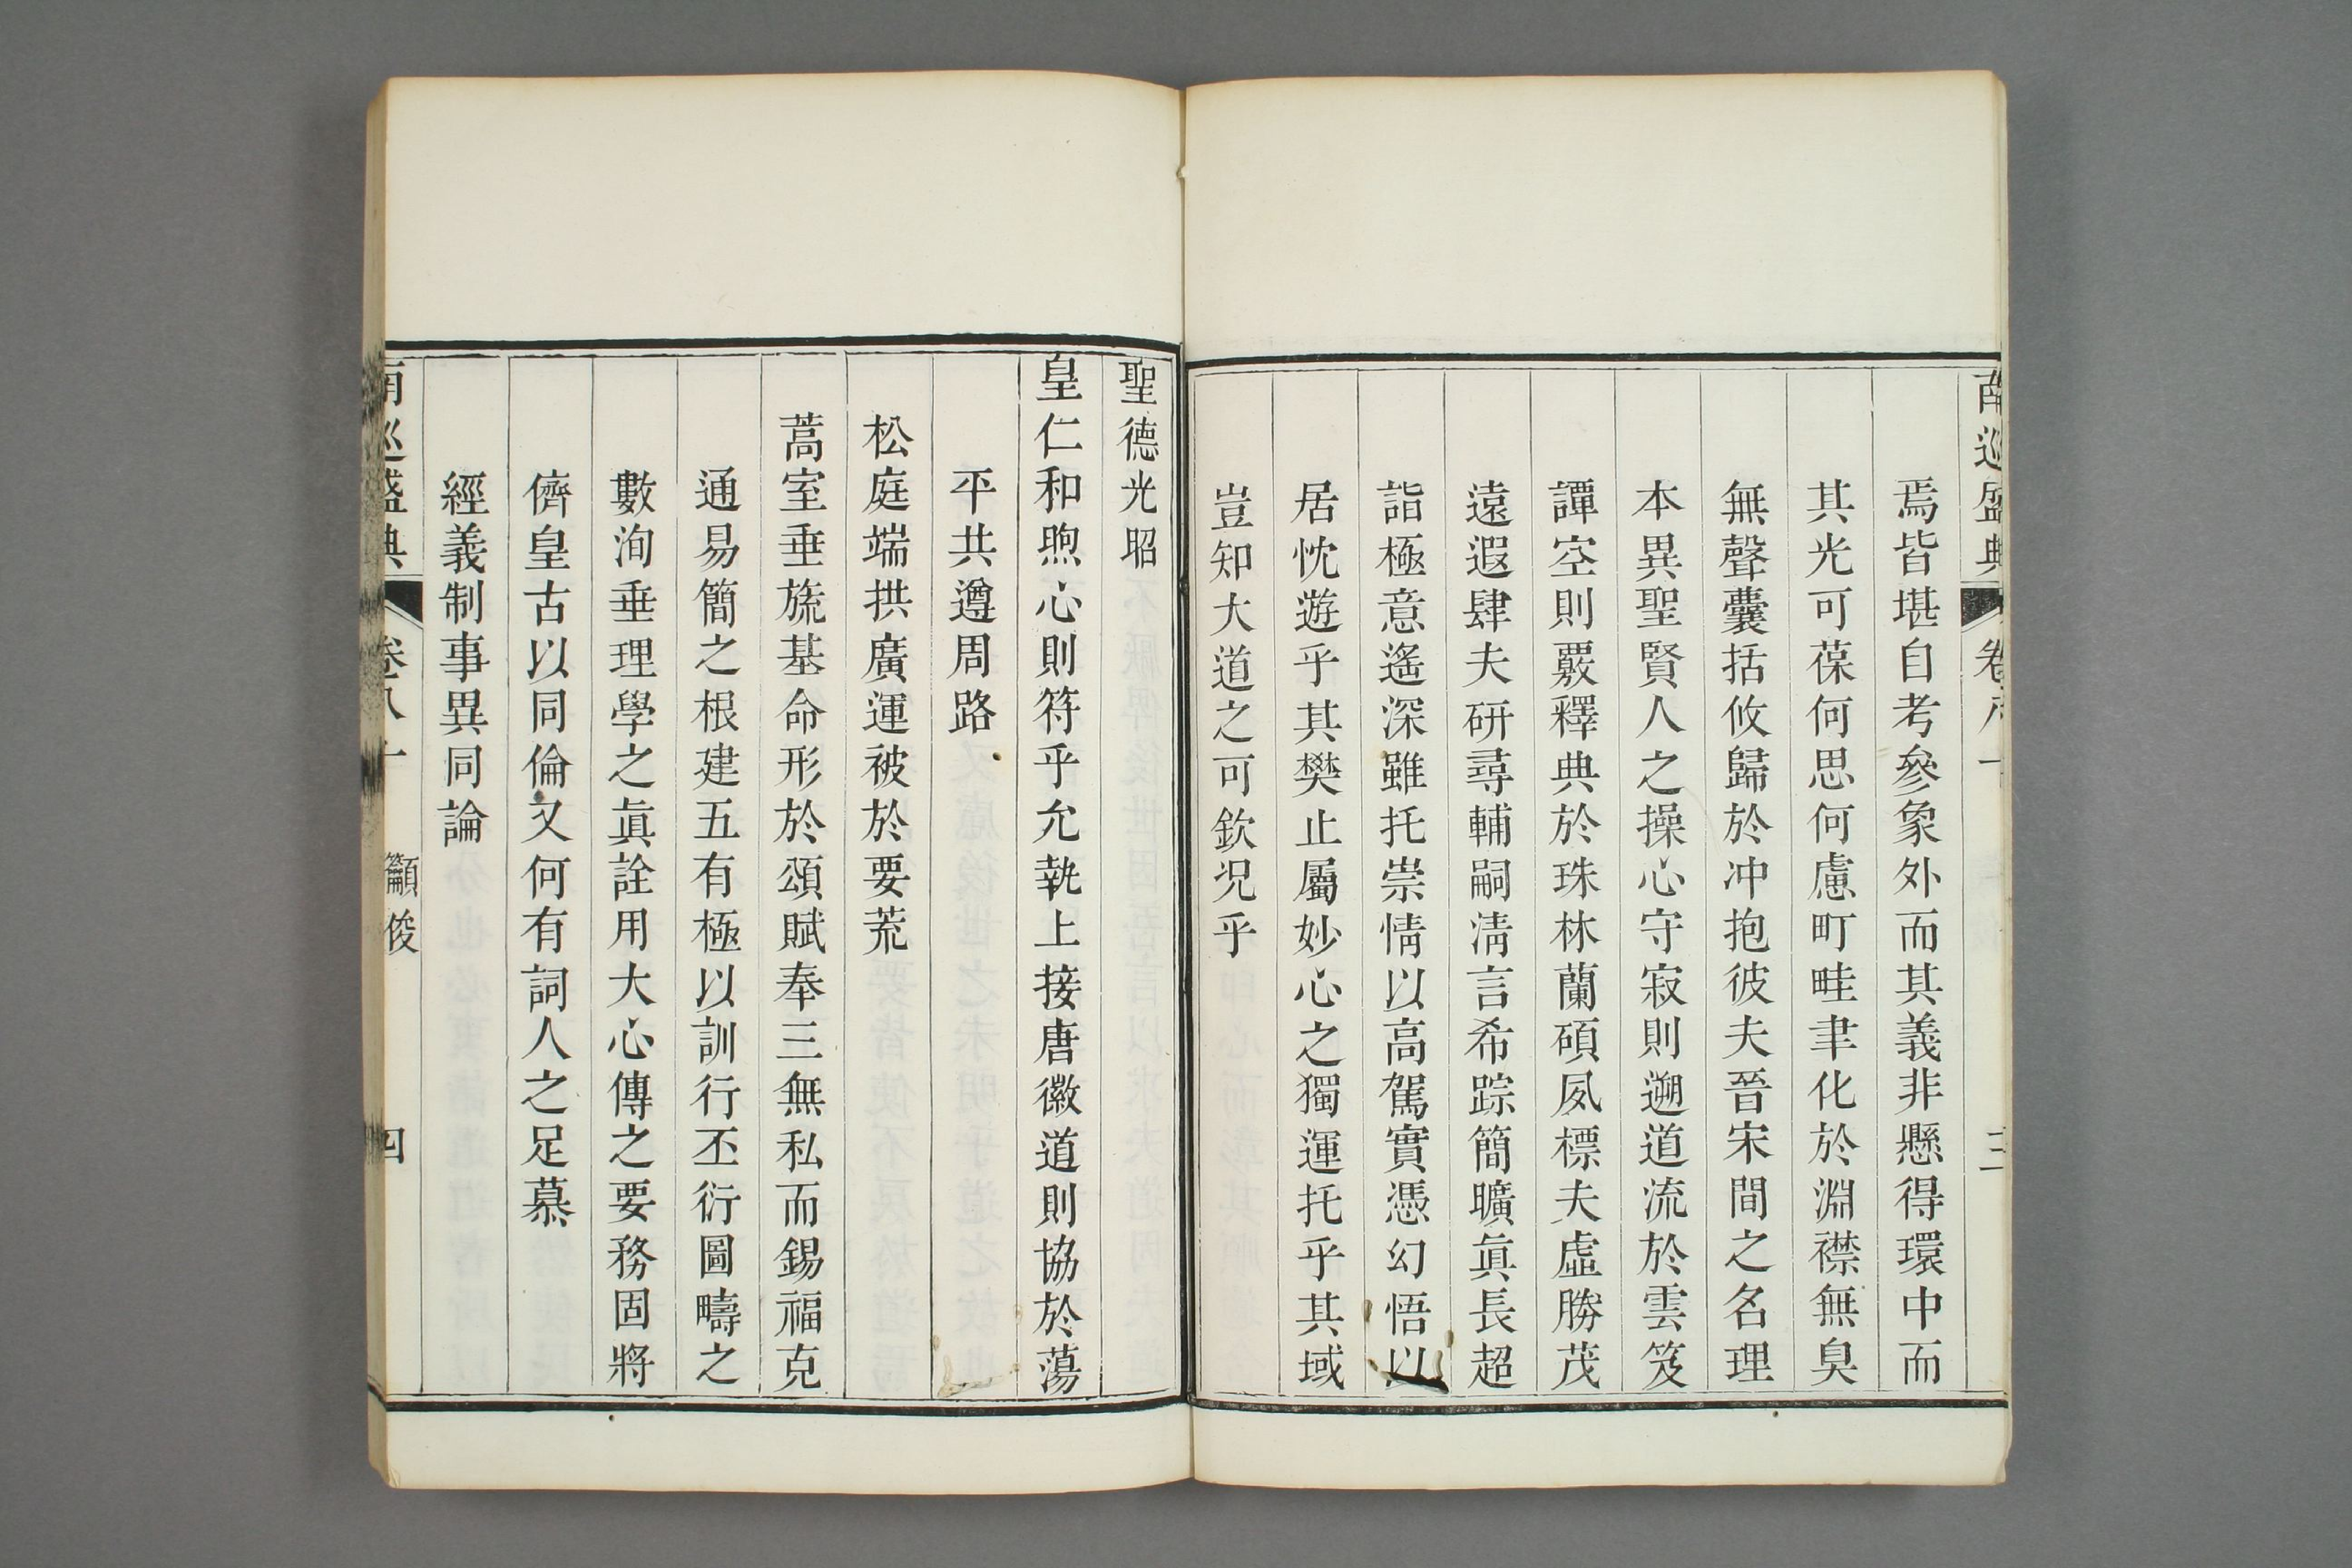 南巡盛典 卷八十 三
焉皆堪自考參象外而其義非懸得環中而
其光可葆何思何慮町畦聿化於淵襟無臭
無聲囊括攸歸於冲抱彼夫晉宋間之名理
本異聖賢人之操心守寂則遡道流於雲笈
譚空則覈釋典於珠林蘭碩夙標夫虛勝茂
遠遐肆夫研尋輔嗣清言希踪簡曠眞長超
詣極意遙深雖托崇情以高駕實憑幻悟以
居忱遊乎其樊止屬妙心之獨運托乎其域
豈知大道之可欽況乎
聖德光昭
皇仁和煦心則符乎允執上接唐徽道則協於蕩
平共遵周路
松庭端拱廣運被於要荒
蒿室垂旒基命形於頌賦奉三無私而錫福克
通易簡之根建五有極以訓行丕衍圖疇之
數洵垂理學之眞詮用大心傳之要務固將
儕皇古以同倫又何有詞人之足慕
經義制事異同論
南巡盛典 卷八十 籲俊 四